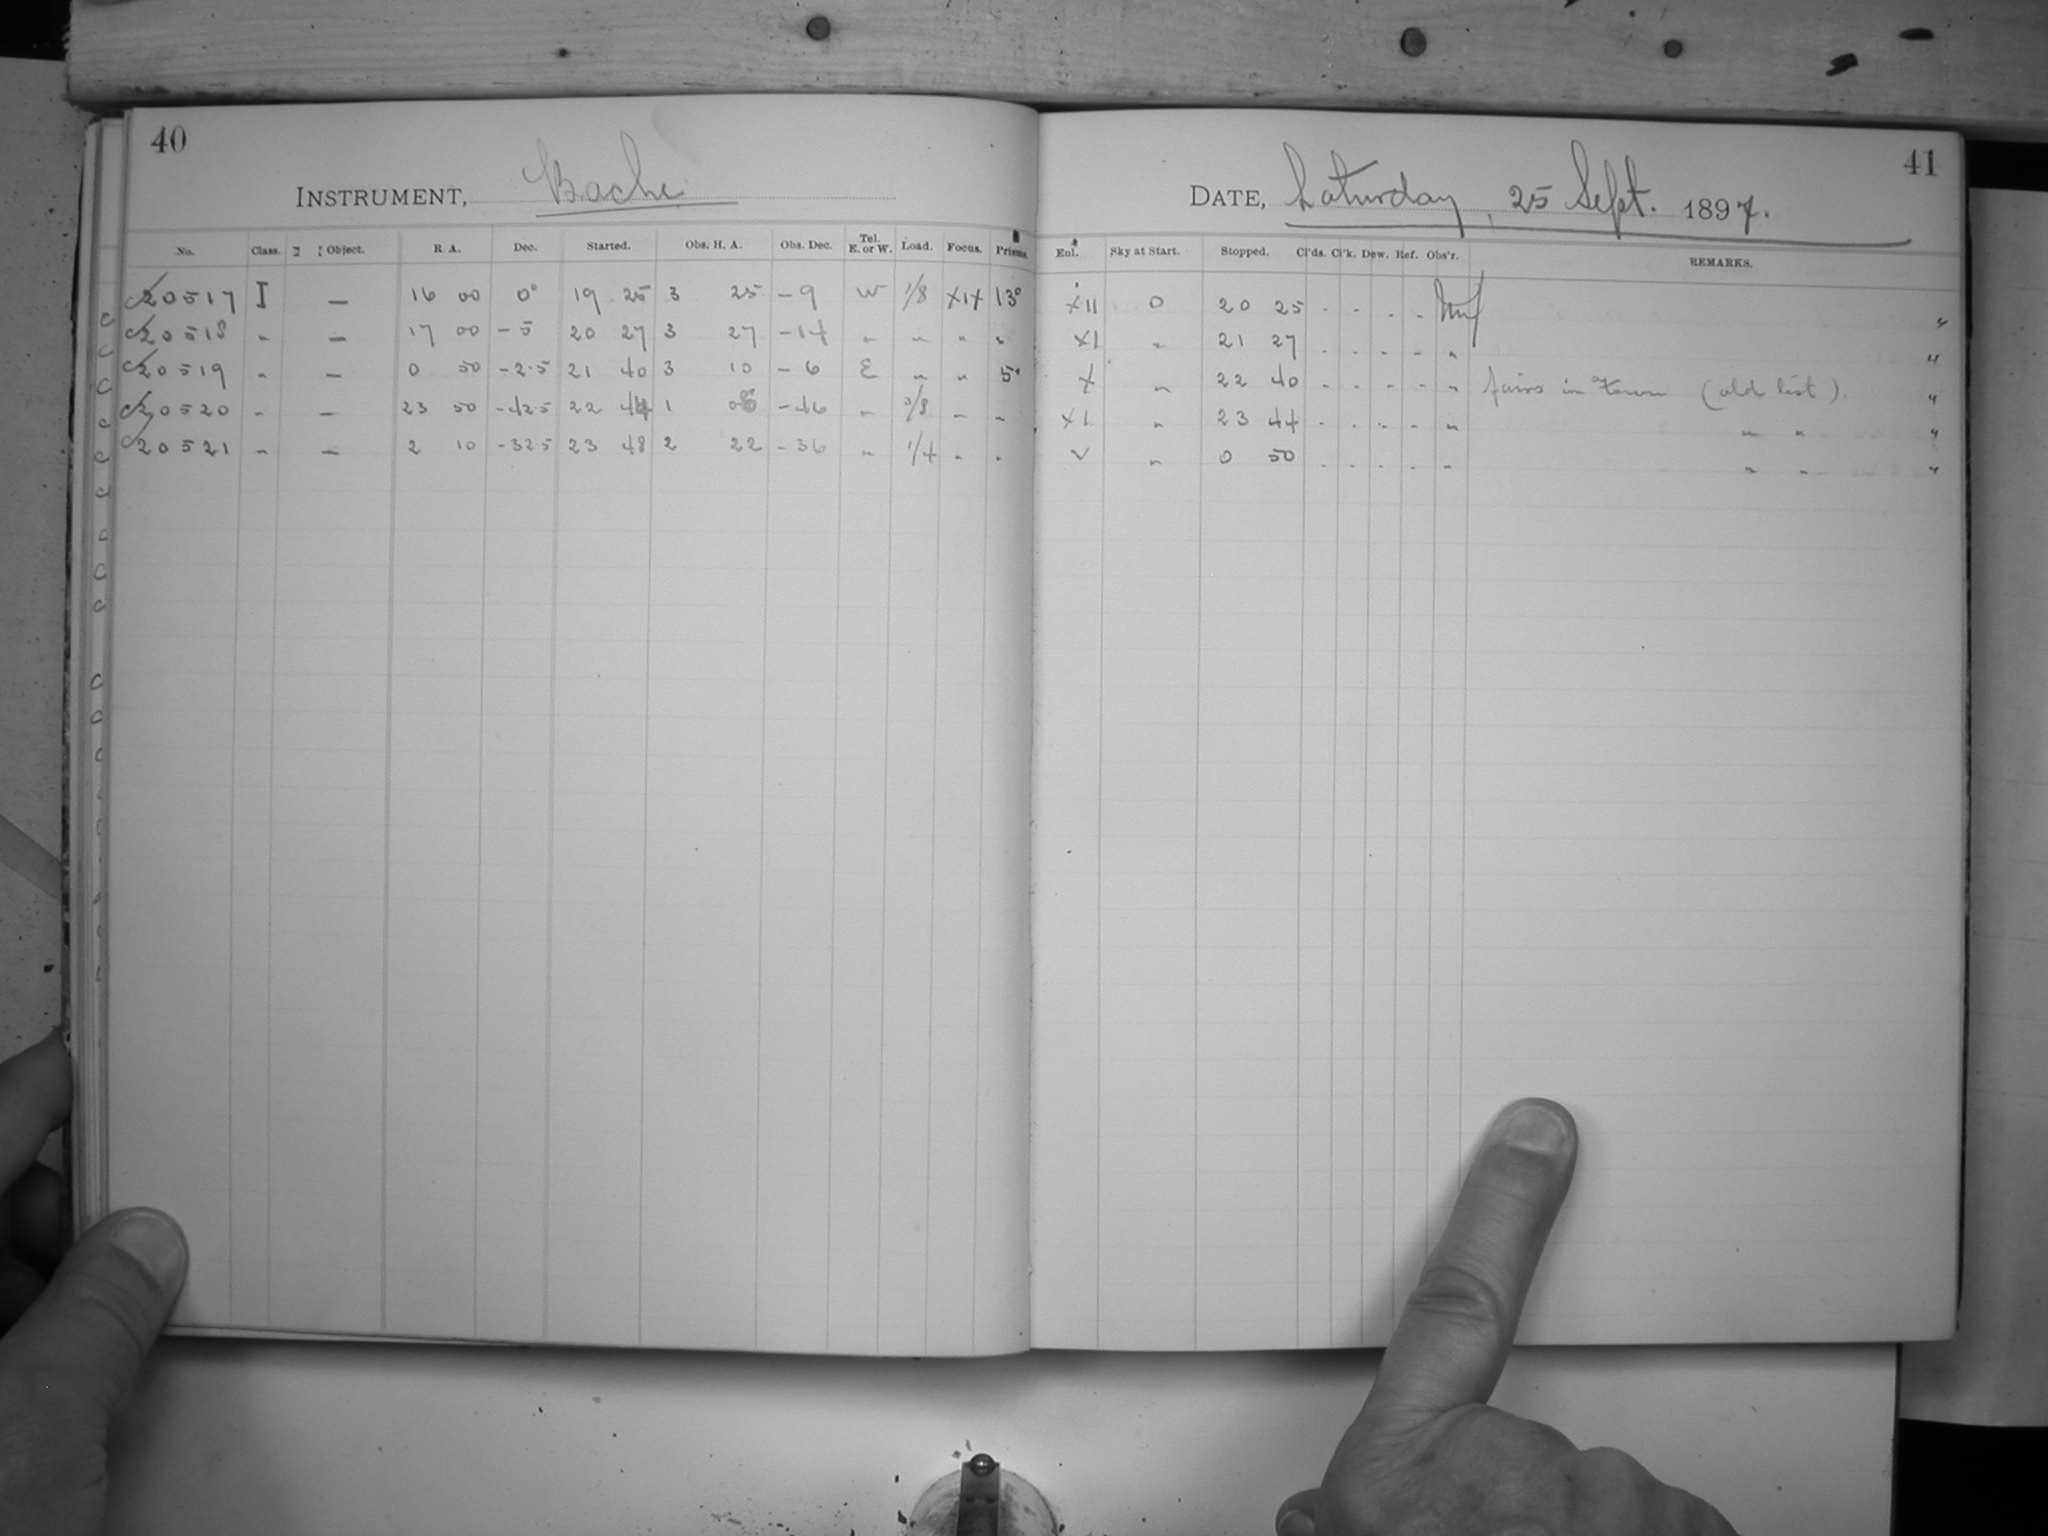 40
INSTRUMENT, Bache
No. Class. Object. R. A. Dec. Started. Obs. H. A. Obs. Dec. Tel. E. or W. Load. Focus. Prisms.
20517 I — 16 00 0° 19 25 3 25 -9 W 1/8 13°
20518 " — 17 00 -5 20 27 3 27 -14 " " " "
20519 " — 0 50 -2.5 21 40 3 10 -6 E " " 5°
20520 " — 23 50 -42.5 22 44 1 -46 " 3/8 " "
20521 " — 2 10 -32.5 23 48 2 22 -36 " 1/4 " "
41
DATE, Saturday, 25 Sept. 1897.
Enl. Sky at Start. Stopped. Cl'ds. Cl'k. Dew. Ref. Obs'r. REMARKS.
XII 0 20 25 . . . .
XI " 21 27 . . . . "
X " 22 40 . . . . " in town (old list).
XI " 23 44 . . . . " " "
V " 0 50 . . . . " " "